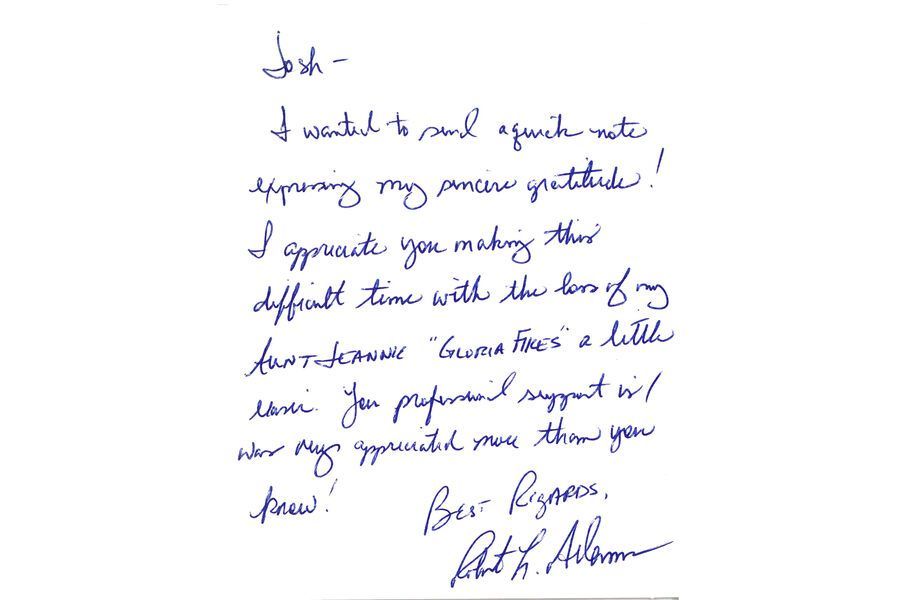 Josh -
I wanted to send a quick note
expressing my sincere gratitude!
I appreciate you making this
difficult time with the loss of my
AUNT JEANNIE "GLORIA FIKES" a little
easier. You professional support is/
was very appreciated more than you
know!
BEST REGARDS,
Robert L. Adams